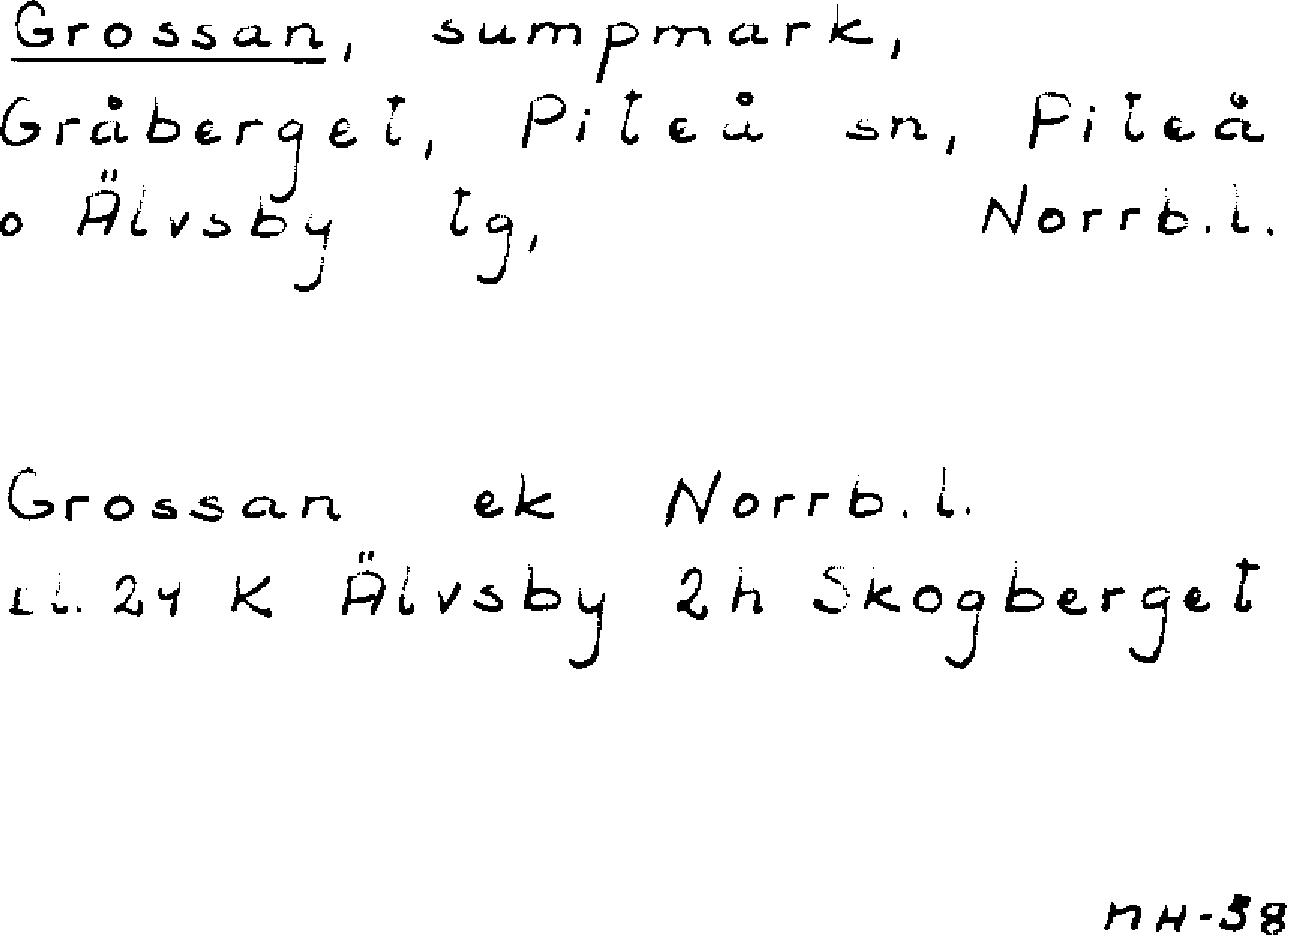 Grossan, sumpmark,
Gråberget, Piteå sn, Piteå
o Älvsby tg, Norrb.l.
Grossan ek Norrb.l.
bl. 24 K Älvsby 2h Skogberget
MH-58